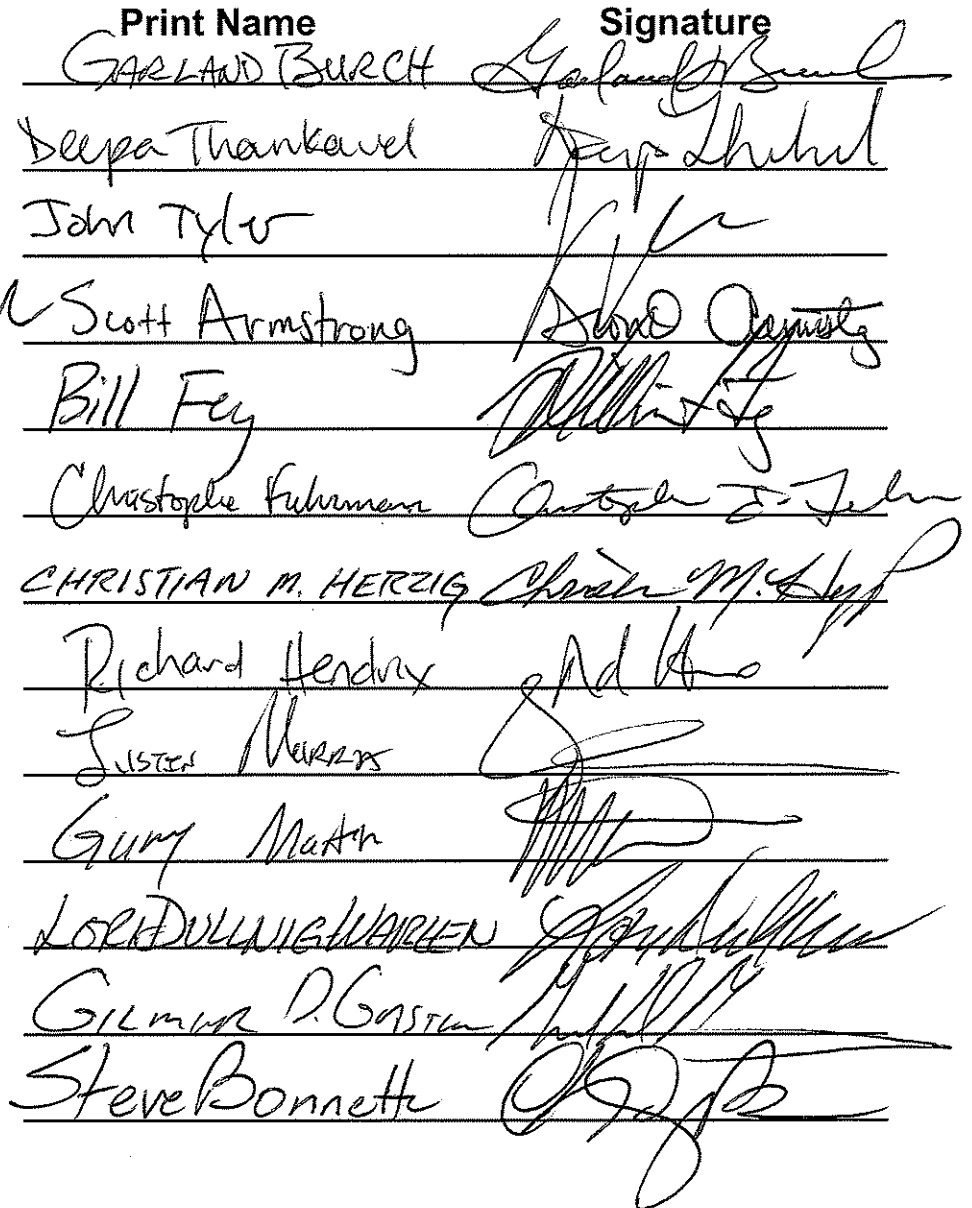 Print Name Signature
GARLAND BURCH Garland Burch
Deepa Thankavel Deepa
John Tyler
Scott Armstrong Scott Armstrong
Bill Fey William Fey
Christophe Fuhrmann Christopher J. Fuhrmann
CHRISTIAN M. HERZIG Christian M. Herzig
Richard Hendrix
JUSTIN MURRAY
Gary Martin
LORI DULLNIG WARREN
GILMAR D. GASTON
Steve Bonnette